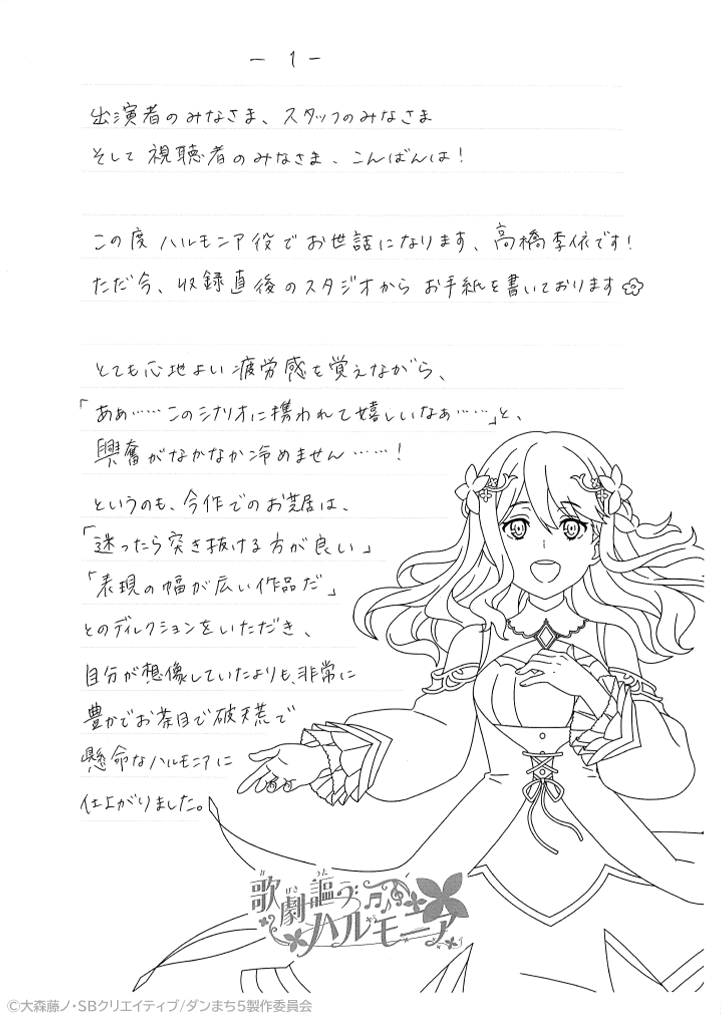 - 1 -
出演者のみなさま、スタッフのみなさま
そして視聴者のみなさま、こんばんは!
この度ハルモニア役でお世話になります、高橋李依です!
ただ今、収録直後のスタジオからお手紙を書いております
とても心地よい疲労感を覚えながら、
「あぁ……このシナリオに携われて嬉しいなぁ……」と、
興奮がなかなか冷めません……!
というのも、今作でのお芝居は、
「迷ったら突き抜ける方が良い」
「表現の幅が広い作品だ」
とのディレクションをいただき、
自分が想像していたよりも、非常に
豊かでお茶目で破天荒で
懸命なハルモニアに
仕上がりました。
歌劇謳うハルモニア
©大森藤ノ・SBクリエイティブ/ダンまち5製作委員会